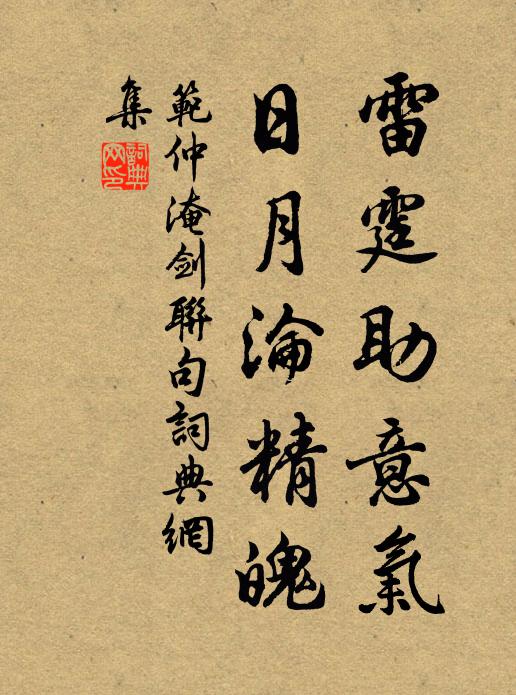 雷霆助意氣
日月淪精魄
範仲淹剑聯句詞典網
集
詞典
网印